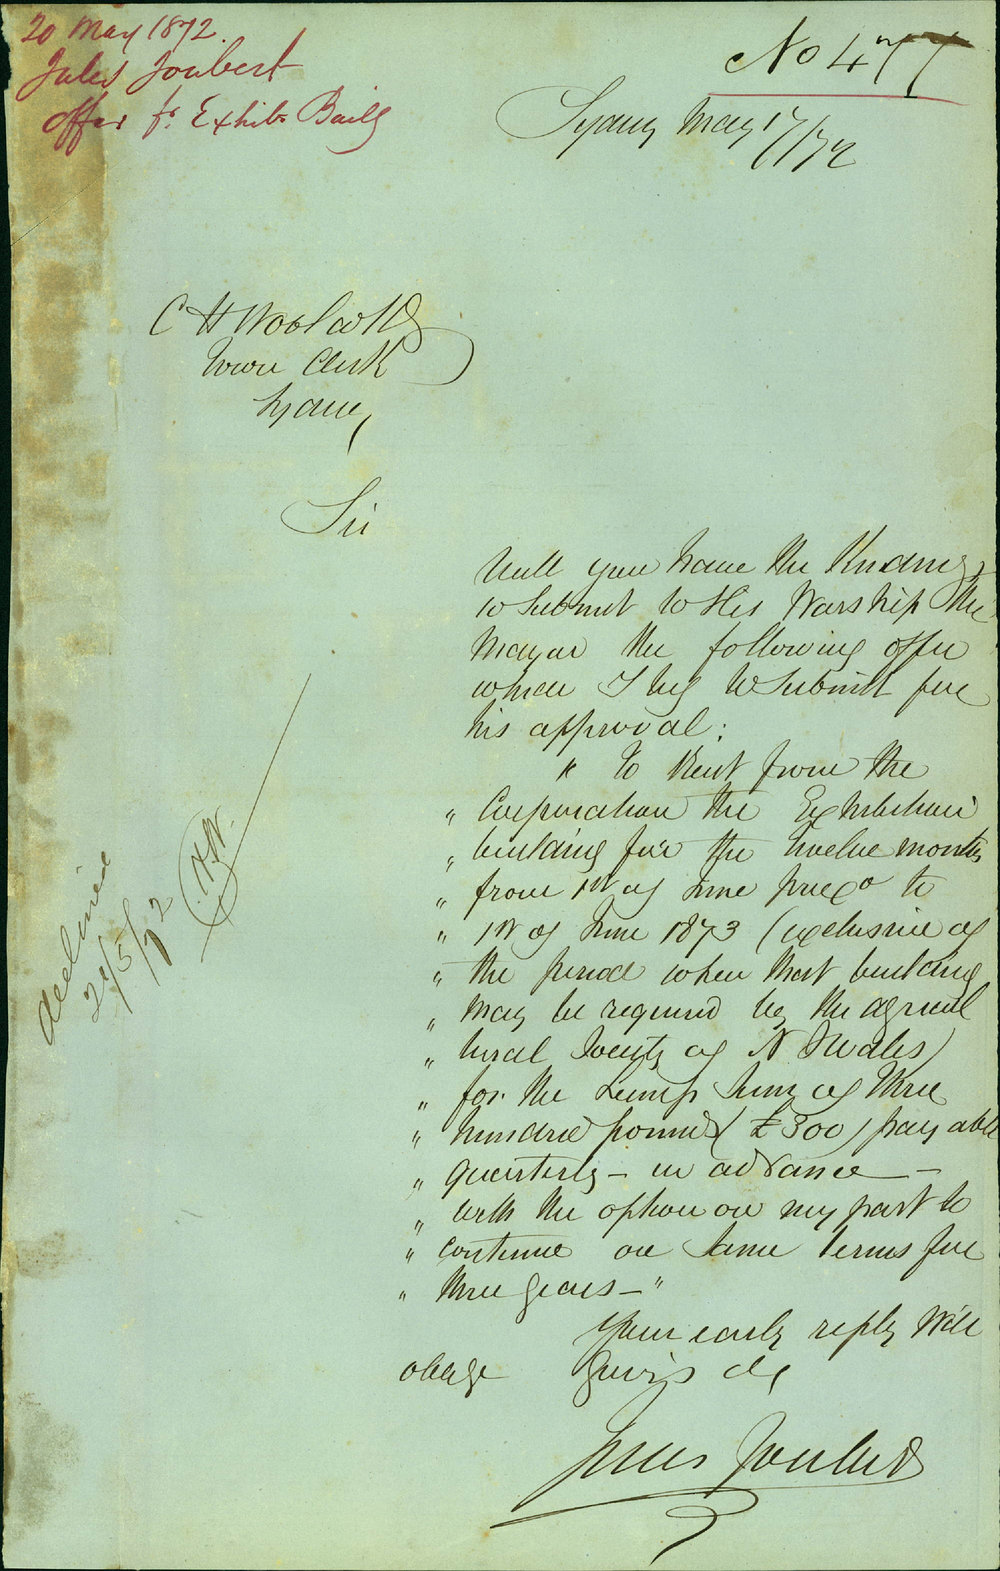 20 May 1872.
Jules Joubert
offer fr. Exhibn Buildg
No 477
Sydney May 17/72
C H Woolcott
Town Clerk
Sydney
Sir
Will you have the Kindness
to submit to His Worship the
Mayor the following offer
which I beg to submit for
his approval:
" To Rent from the
" Corporation the Exhibition
" building for the twelve months
" from 1st of June proxo to
" 1st of June 1873 (exclusive of
" the period when that building
" may be required by the Agricul
" tural Society of N S Wales)
" for the Lump Sum of three
" hundred pounds (£300) payable
" quarterly - in advance -
" with the option on my part to
" continue on same terms for
" three years - "
Your early reply will
oblige Yours &c
Jules Joubert
declined
21/5/72